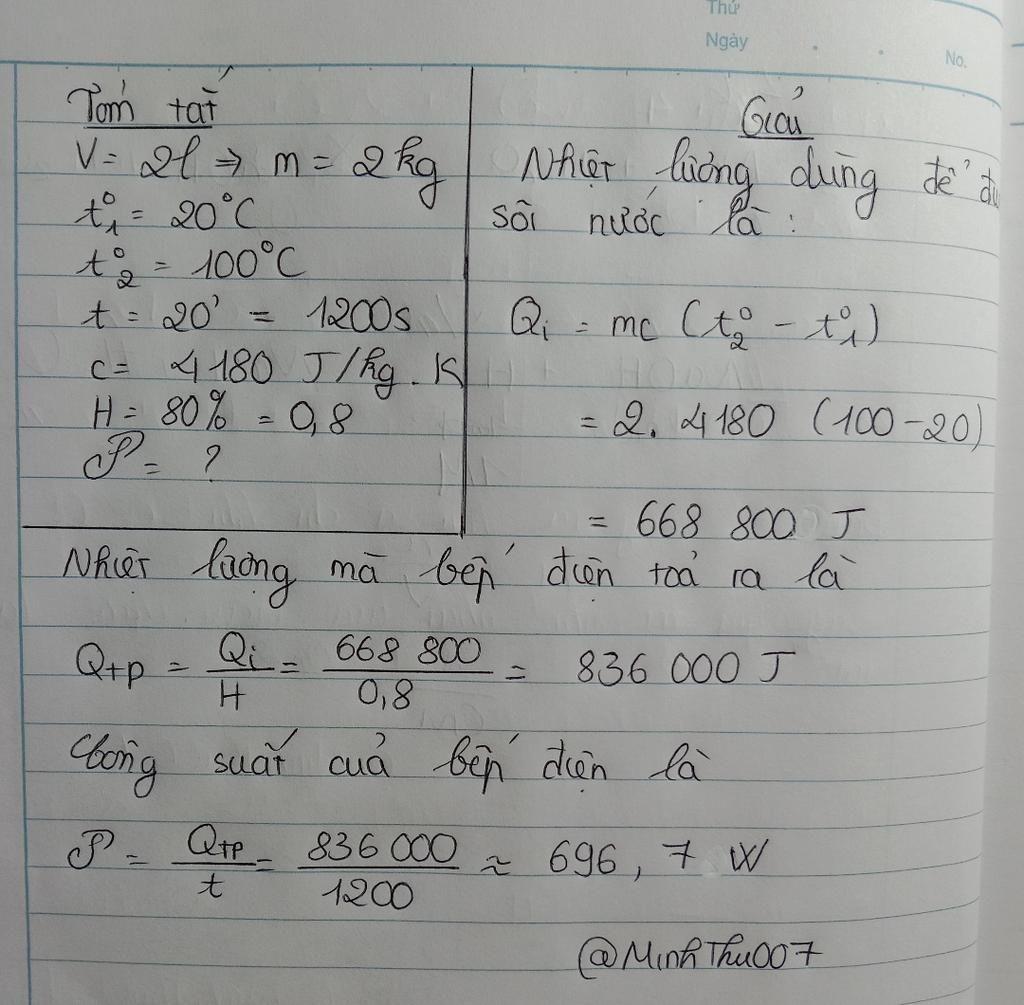 Thứ
Ngày
No.
Tóm tắt
V = 2l ⇒ m = 2kg
t°₁ = 20°C
t°₂ = 100°C
t = 20' = 1200s
c = 4180 J/kg.K
H = 80% = 0,8
𝒫 = ?
Giải
Nhiệt lượng dùng để đu
sôi nước là :
Qᵢ = mc (t°₂ - t°₁)
= 2. 4180 (100-20)
= 668 800 J
Nhiệt lượng mà bếp điện toả ra là
Qtp = Qi/H = 668 800/0,8 = 836 000 J
Công suất của bếp điện là
𝒫 = Qtp/t = 836 000/1200 ≈ 696,7 W
@MinhThu007